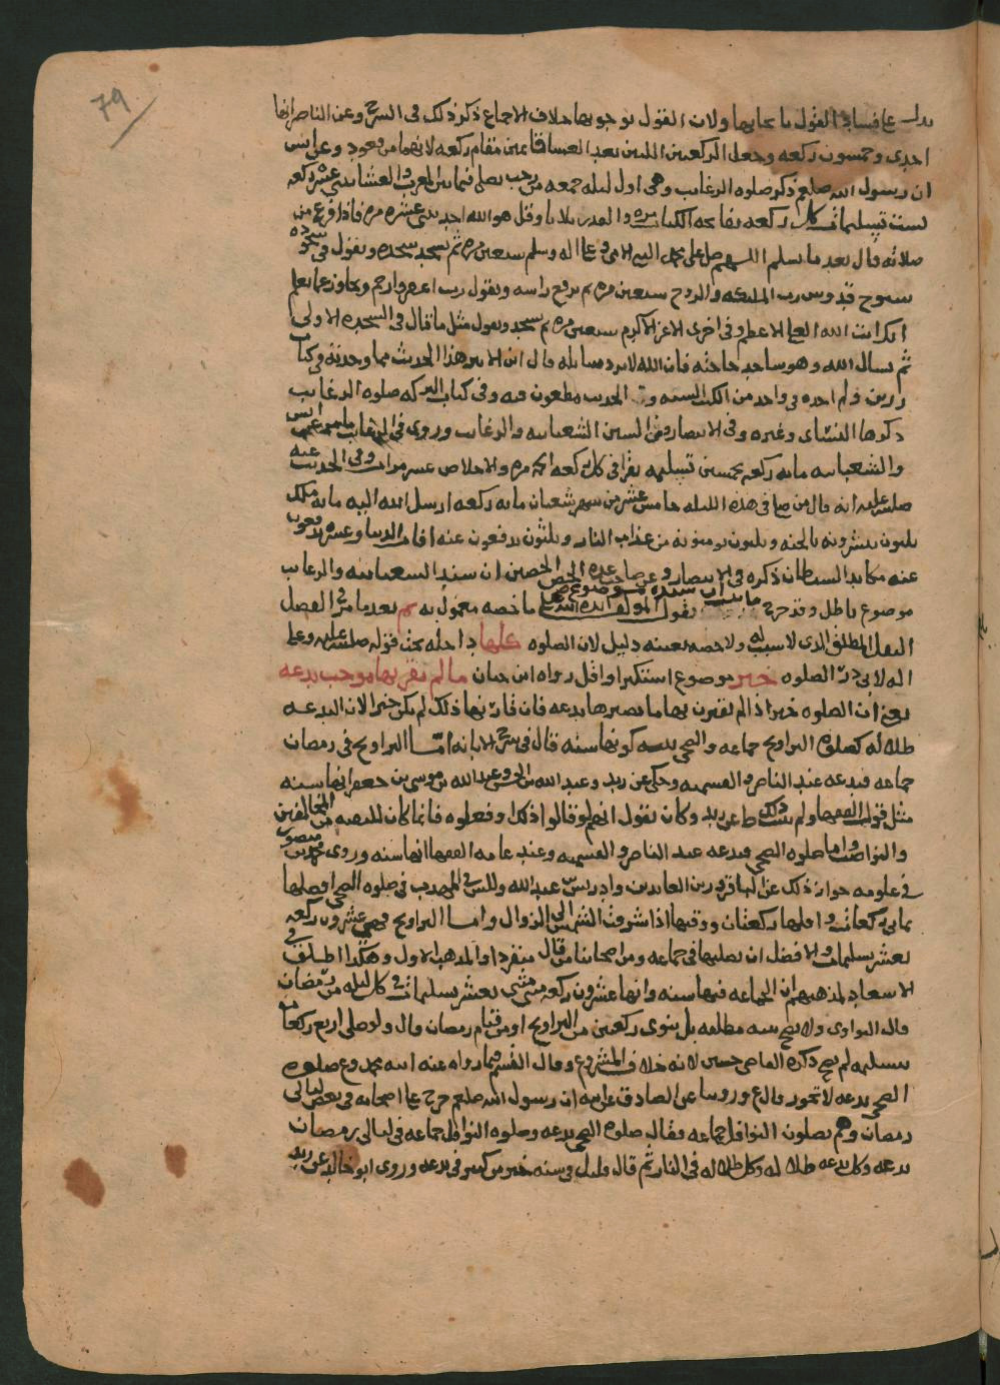 79
يدل على فساد القول بايجابها ولان القول بوجوبها خلاف الاجماع ذكر ذلك في الشرح وعن الناصر انها
احدى وخمسون ركعه وجعل الركعتين اللتين بعد العشا قائمتين مقام ركعه لانهما من قعود وعن انس
ان رسول الله صلعم ذكر صلوه الرغايب وهي اول ليله جمعه من رجب يصلي فيما بين المغرب والعشا اثنتي عشره ركعه
بست تسليمات كل ركعه بفاتحه الكتاب مره والقدر ثلاثا وقل هو الله احد ثنتي عشره مره فاذا فرغ من
صلاته قال بعد ما يسلم اللهم صل على محمد النبي الامي وعلى اله وسلم سبعين مره ثم يسجد سجده ويقول في سجوده
سبوح قدوس رب الملئكه والروح سبعين مره ثم يرفع راسه ويقول رب اغفر وارحم وتجاوز عما تعلم
انك انت الله العلي الاعظم وفي اخرى الاعز الاكرم سبعين مره ثم يسجد ويقول مثل ما قال في السجده الاولى
ثم يسال الله وهو ساجد حاجته فان الله لا يرد سائله قال ابن الاثير هذا الحديث مما وجدته في كتاب
رزين ولم اجده في واحد من الكتب السته والحديث مطعون فيه وفي كتاب البركه صلوه الرغايب
ذكرها النساي وغيره وفي الانتصار ومن السنن الشعبانيه والرغايب وروى في الرغايب ما مر عن انس
والشعبانيه مايه ركعه بخمسين تسليمه يقرا في كل ركعه الحمد مره والاخلاص عشر مرات وفي الحديث عنه
صلى الله عليه انه قال من صلى في هذه الليله خامس عشر من شهر شعبان مايه ركعه ارسل الله اليه مايه ملك
ثلثون يبشرونه بالجنه وثلثون يومنونه من عذاب النار وثلثون يدفعون عنه افات الدنيا وعشره يدفعون
عنه مكايد الشيطان ذكره في الانتصار وعن صاحب عده الحصن الحصين ان سند الشعبانيه والرغايب
موضوع باطل وقد خرج يقول المولف ايده الله ما خصه معمول به ثم بعدها من الفضل
النفل المطلق الذي لا سبب له ولا خصه بعينه دليل لان الصلوه عليها داخله تحت قوله صلى الله عليه وعلى
اله لابي ذر الصلوه خير موضوع استكثر او اقل رواه ابن حبان ما لم تقترن بها موجب بدعه
يعني ان الصلوه خير اذا لم يقترن بها ما يصيرها بدعه فان قارنها ذلك لم يكن خيرا لان البدعه
ضلاله كصلوه التراويح جماعه والضحى بنيه كونها سنه قال في شرح الابانه امّا التراويح في رمضان
جماعه فبدعه عند الناصر والقسميه وحكى عن زيد وعبد الله بن الحسن وعبد الله بن موسى بن جعفر انها سنه
مثل قول الفقها ولم يثبت ذلك عن زيد وكان يقول انهم لو قالوا ذلك او فعلوه فانما كان للتقيه من المخالفين
والنواصب واما صلوه الضحى فبدعه عند الناصر والقسميه وعند عامه الفقها انها سنه وروى محمد بن منصور
في علومه جواز ذلك عن الباقر وزين العابدين وادريس بن عبد الله وللش في المهذب في صلوه الضحى افضلها
ثماني ركعات واقلها ركعتان ووقتها اذا شرقت الشمس الى الزوال واما التراويح فهي عشرون ركعه
بعشر تسليمات والافضل ان يصليها في جماعه ومن اصحابنا من قال منفردا والمذهب الاول وهكذا اطلق في
الاسعاد لمذهبهم ان الجماعه فيها سنه وانها عشرون ركعه مثنى مثنى بعشر تسليمات في كل ليله من رمضان
قال النواوي ولا تصح بنيه مطلقه بل ينوي ركعتين من التراويح او من قيام رمضان قال ولو صلى اربع ركعات
بتسليمه لم يصح ذكره القاضي حسين لانه خلاف المشروع وقال القسم فيما رواه عنه ابنه محمد وع صلوه
الضحى بدعه لا تجوز قال ع وروينا عن الصادق عن ابيه ان رسول الله صلعم خرج على اصحابه في بعض ليالي
رمضان وهم يصلون النوافل جماعه فقال صلوه الضحى بدعه وصلوه النوافل جماعه في ليالي رمضان
بدعه وكل بدعه ضلاله وكل ضلاله في النار ثم قال قليل في سنه خير من كثير في بدعه وروى ابو خالد عن زيد